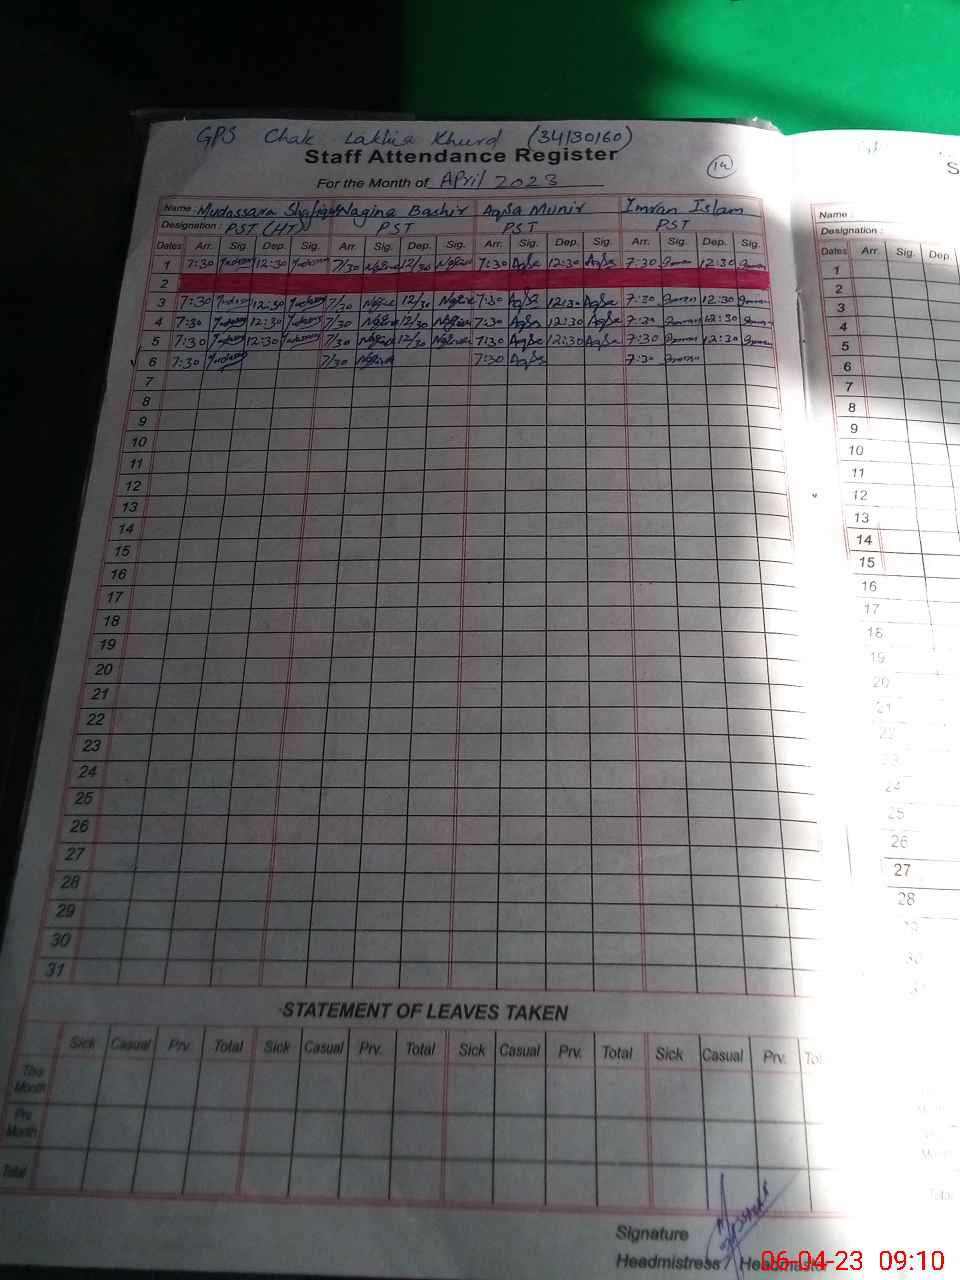 GPS Chak Lakhia Khurd (34130160)
Staff Attendance Register
14
For the Month of April 2023
Name : Mudassara Shafique Nagina Bashir Aqsa Munir Imran Islam
Designation : PST (HT) PST PST PST
Dates Arr. Sig. Dep. Sig. Arr. Sig. Dep. Sig. Arr. Sig. Dep. Sig. Arr. Sig. Dep. Sig.
1 7:30 12:30 7/30 Nagina 12/30 Nagina 7:30 Aqsa 12:30 Aqsa 7:30 Imran 12:30 Imran
2
3 7:30 12:30 7/30 Nagina 12/30 Nagina 7:30 Aqsa 12:30 Aqsa 7:30 Imran 12:30 Imran
4 7:30 12:30 7/30 Nagina 12/30 Nagina 7:30 Aqsa 12:30 Aqsa 7:30 Imran 12:30 Imran
5 7:30 12:30 7/30 Nagina 12/30 Nagina 7:30 Aqsa 12:30 Aqsa 7:30 Imran 12:30 Imran
6 7:30 7/30 Nagina 7:30 Aqsa 7:30 Imran
7
8
9
10
11
12
13
14
15
16
17
18
19
20
21
22
23
24
25
26
27
28
29
30
31
STATEMENT OF LEAVES TAKEN
Sick Casual Prv. Total Sick Casual Prv. Total Sick Casual Prv. Total Sick Casual Prv.
This Month
Pre. Month
Total
Signature
Headmistress / Headmaster
Name :
Designation :
Dates Arr. Sig. Dep.
1
2
3
4
5
6
7
8
9
10
11
12
13
14
15
16
17
18
19
20
21
22
23
24
25
26
27
28
06-04-23 09:10